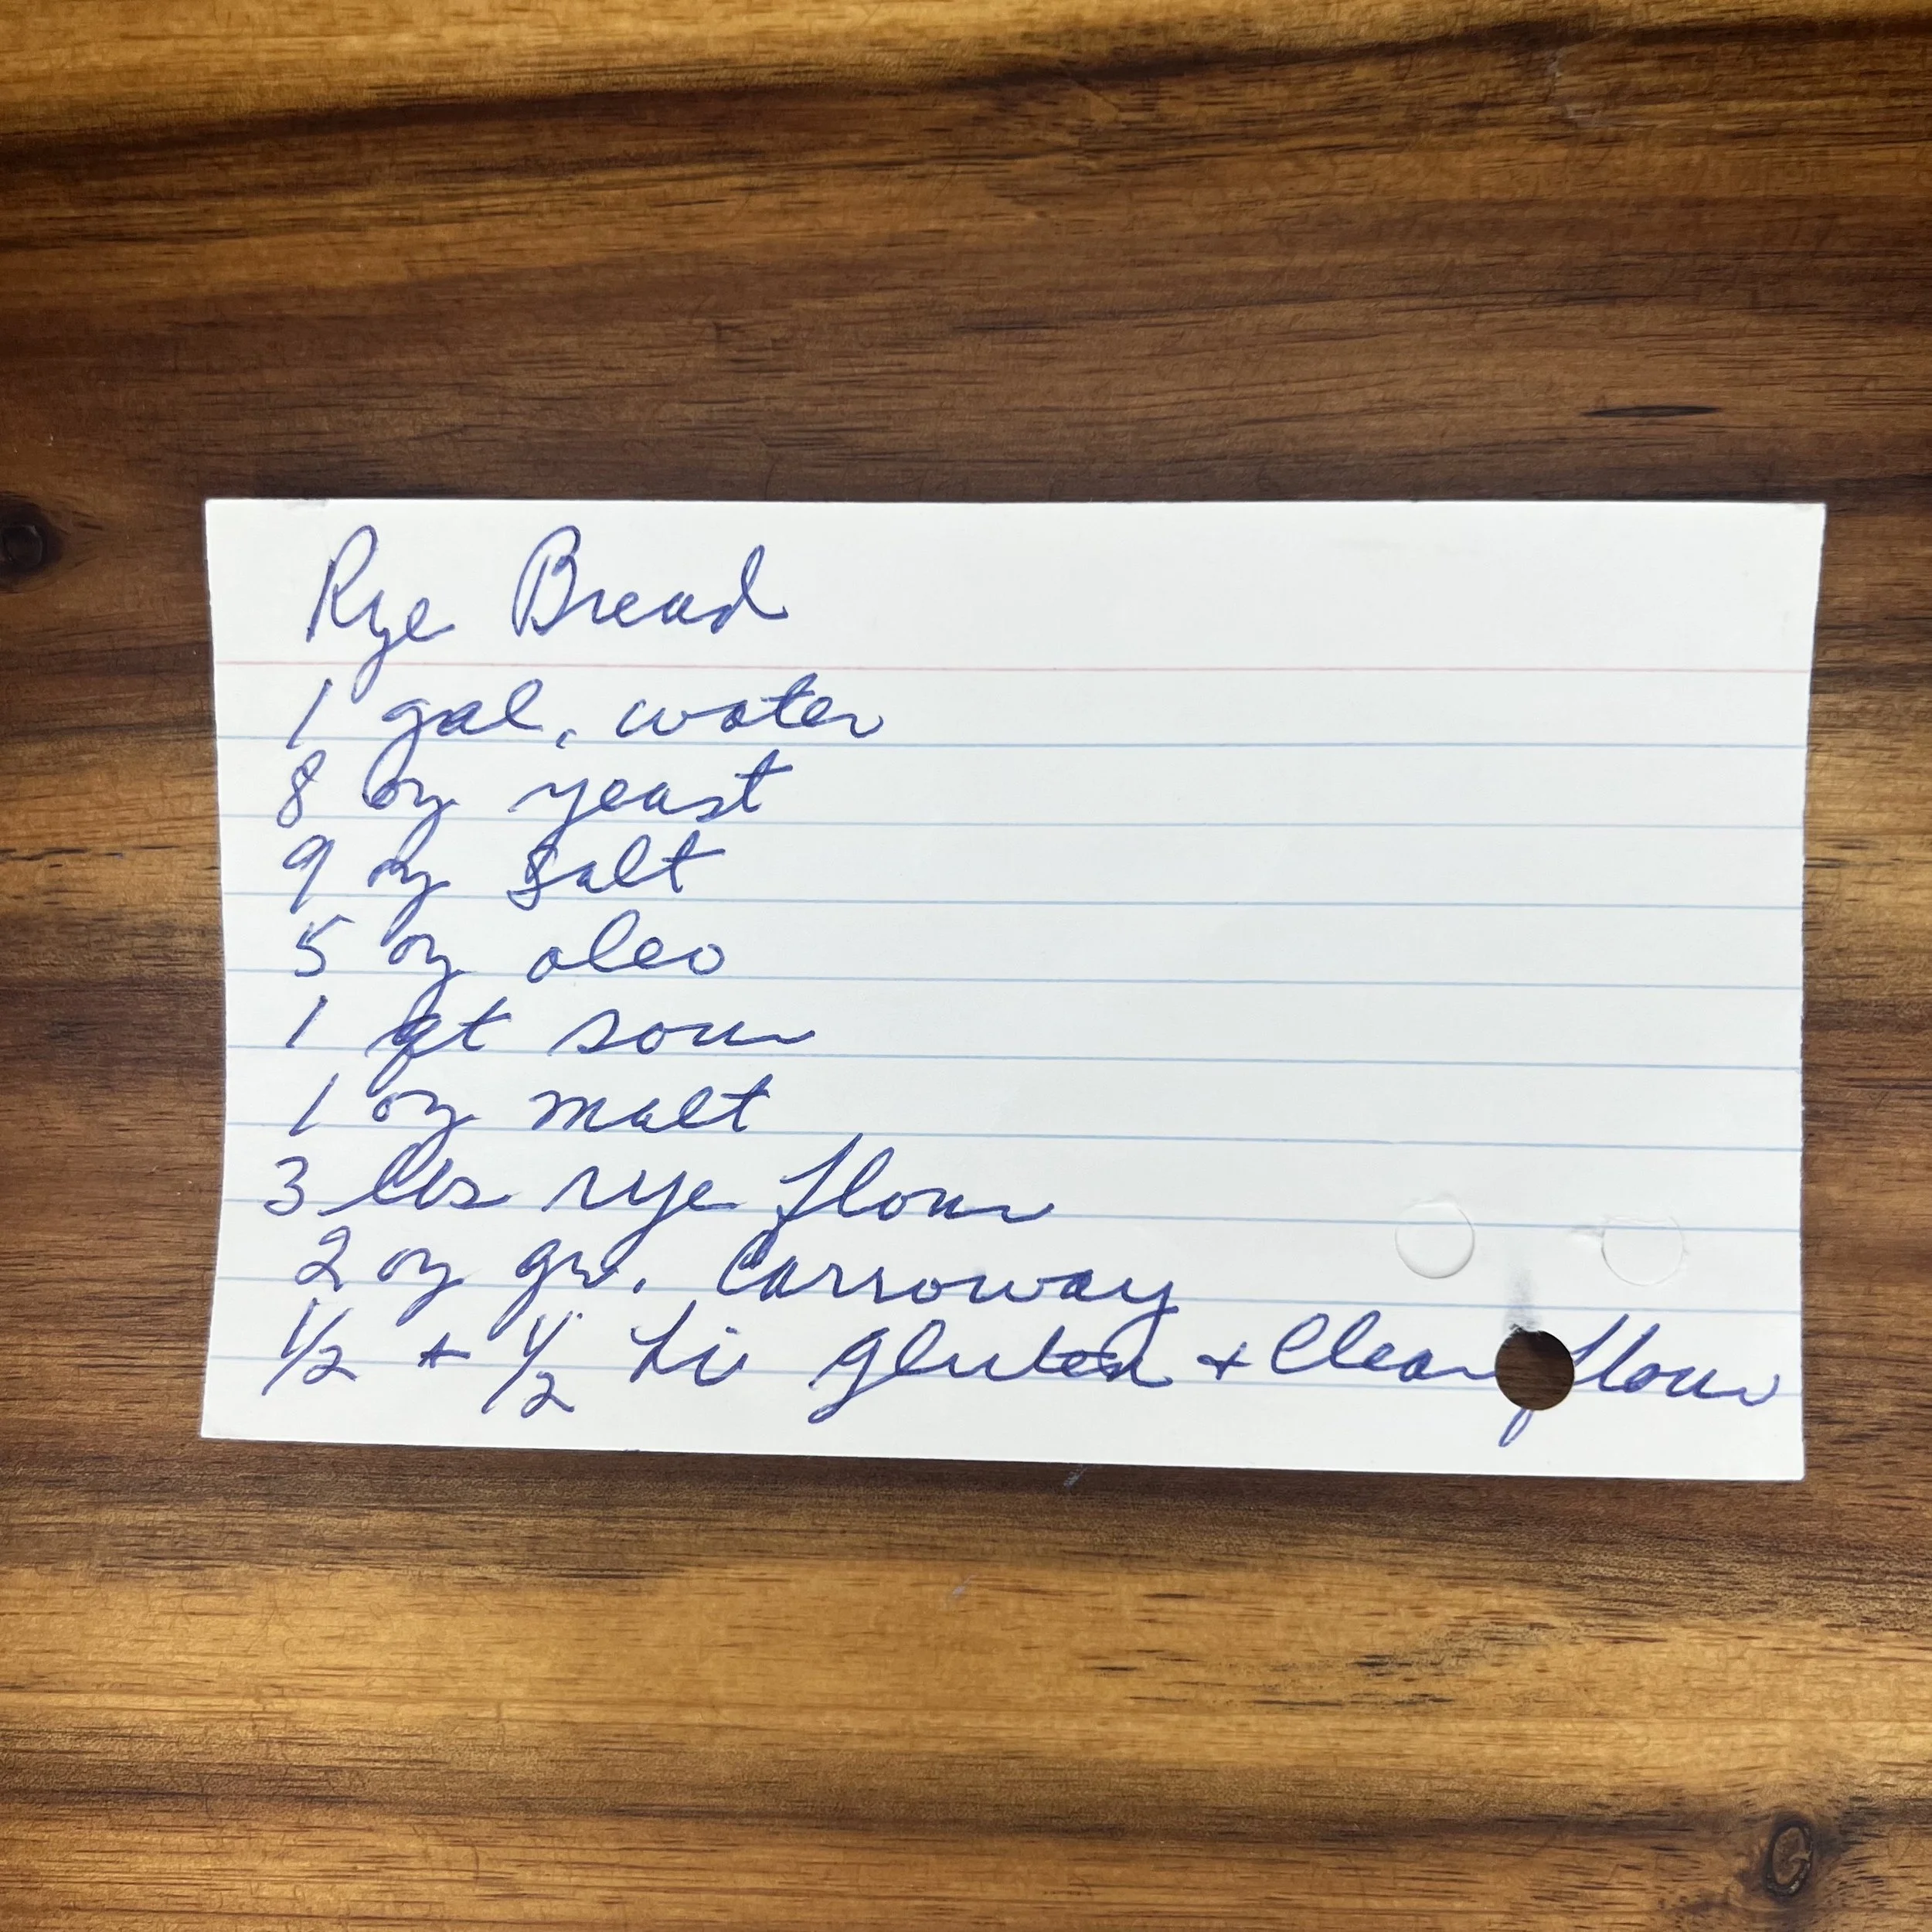 Rye Bread
1 gal. water
8 oz yeast
9 oz salt
5 oz oleo
1 qt sour
1 oz malt
3 lbs rye flour
2 oz gr. Carroway
1/2 + 1/2 hi gluten + Clear flour